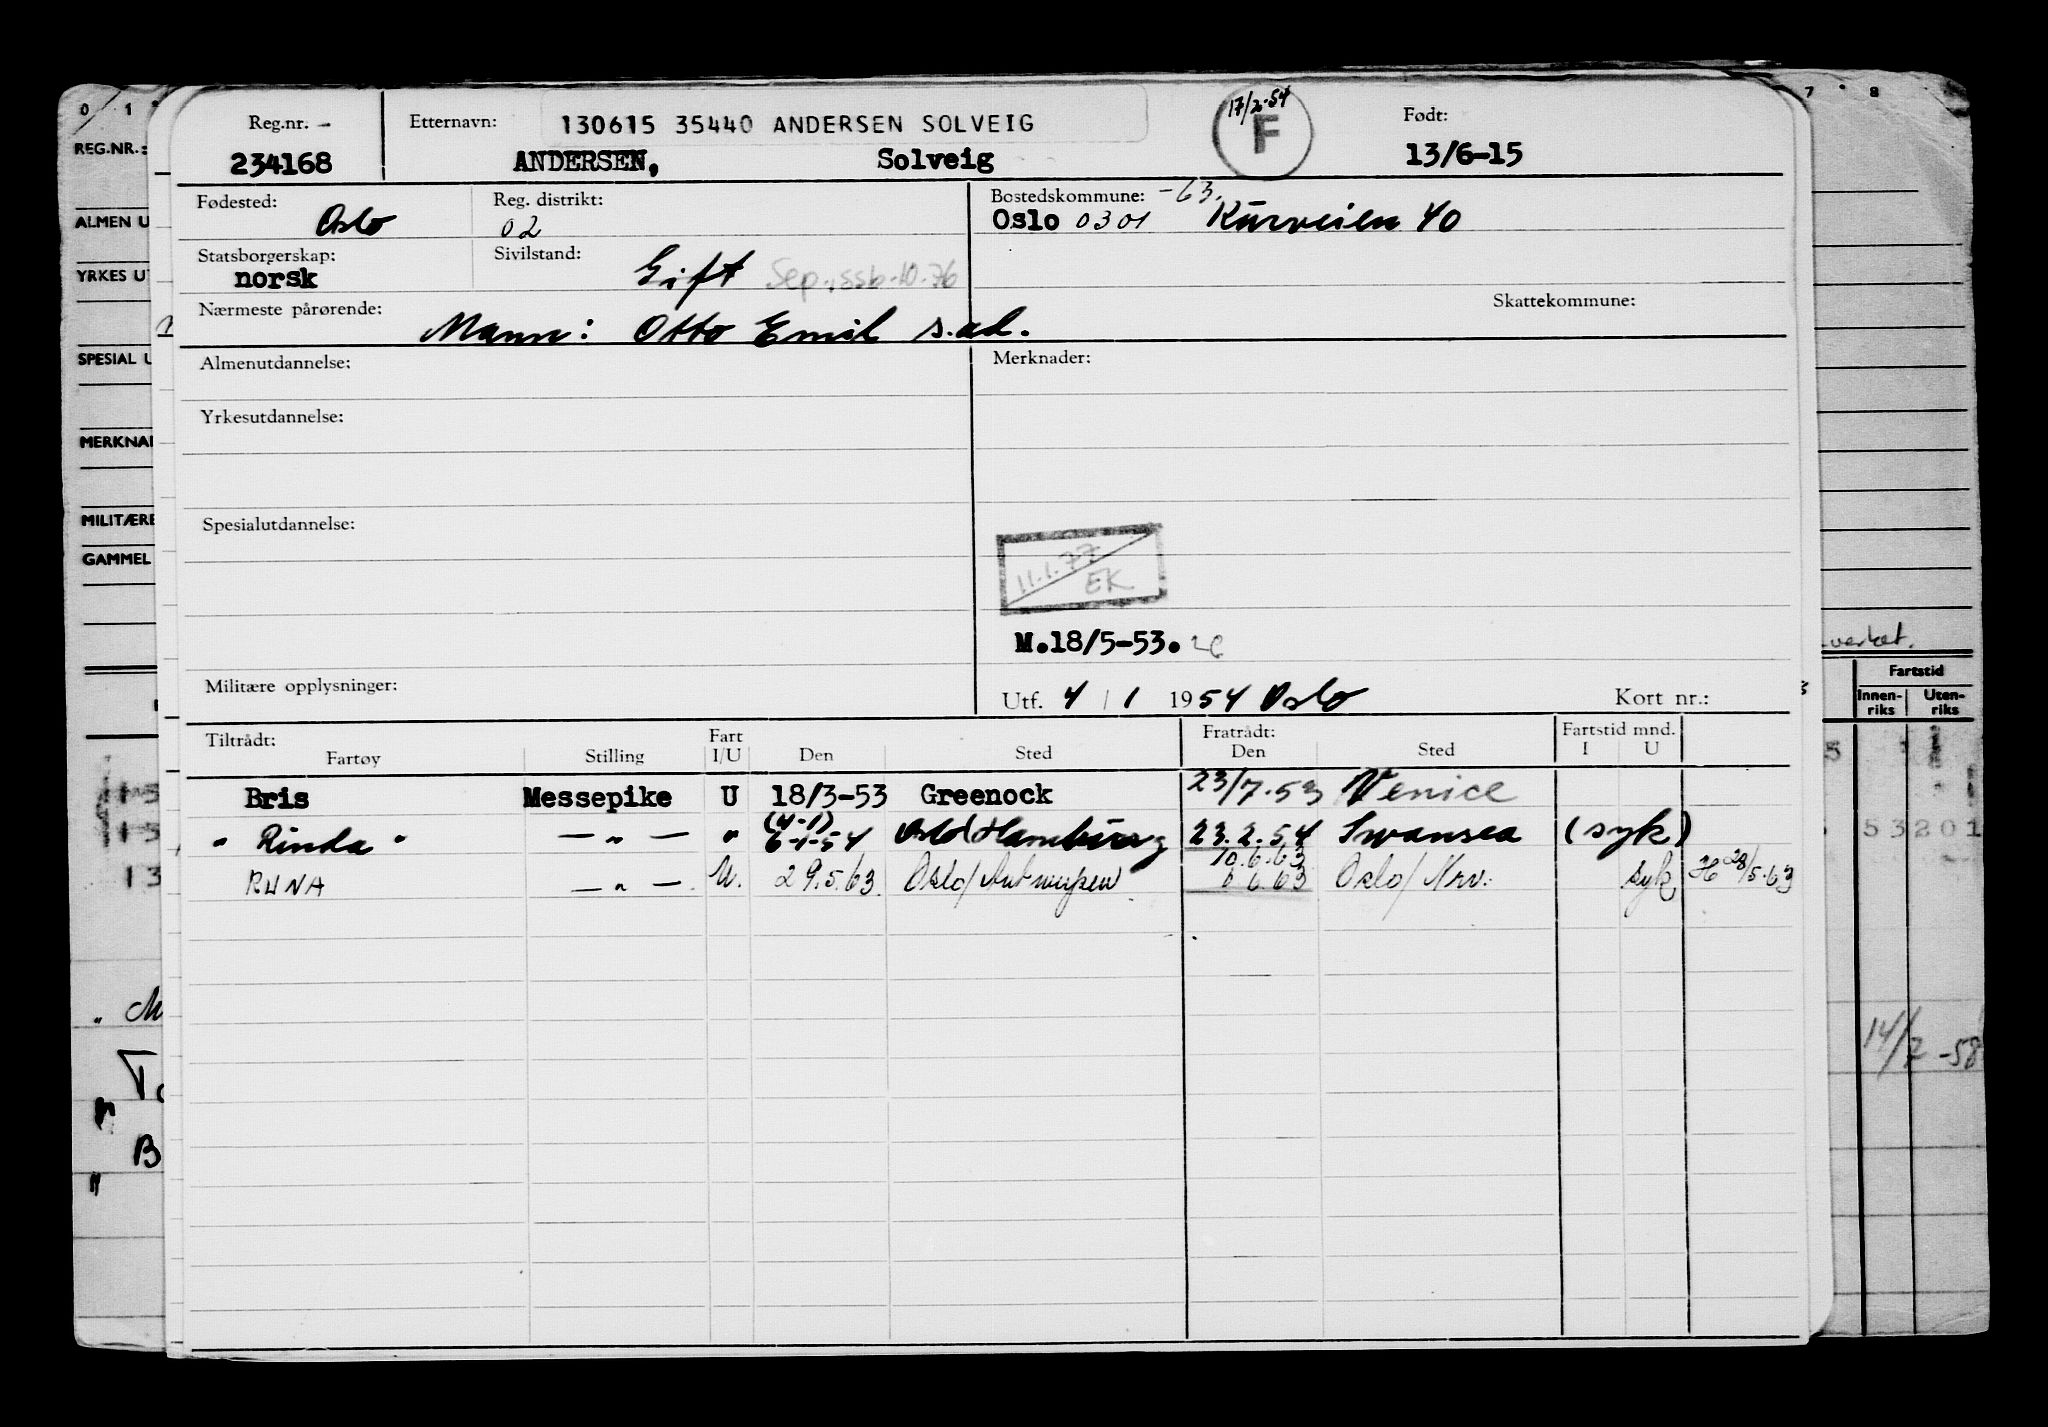 Reg.nr. – Etternavn: 130615 35440 ANDERSEN SOLVEIG 17/2-54 F Født:
234168 ANDERSEN, Solveig 13/6-15
Fødested: Oslo Reg. distrikt: 02 Bostedskommune: -63.
Oslo 0301 Kurveien 40
Statsborgerskap: norsk Sivilstand: Gift Sep., ssb.-10.-76
Nærmeste pårørende: Mann: Otto Emil s.ad. Skattekommune:
Almenutdannelse: Merknader:
Yrkesutdannelse:
Spesialutdannelse:
11.1.77
EK
M.18/5-53.
Militære opplysninger: Utf. 4/1 1954 Oslo Kort nr.:
Tiltrådt: Fart Fratrådt: Fartstid mnd.
Fartøy Stilling I/U Den Sted Den Sted I U
Bris Messepike U 18/3-53 Greenock 23/7.53 Venice
(4-1)
" Rinda " — " — " 6-1-54 Oslo/Hamburg 23.2.54 Swansea (syk)
10.6.63
RUNA — " — U. 29.5.63 Oslo/Antwerpen 6.6.63 Oslo/Nrv. syk H 28/5.63
0 1
REG.NR.:
ALMEN U
YRKES UT
SPESIAL U
MERKNA
MILITÆRE
GAMMEL
" M
To
B
"
7 8
verket.
Fartstid
Innen-
riks
Uten-
riks
53 201
14/7-58